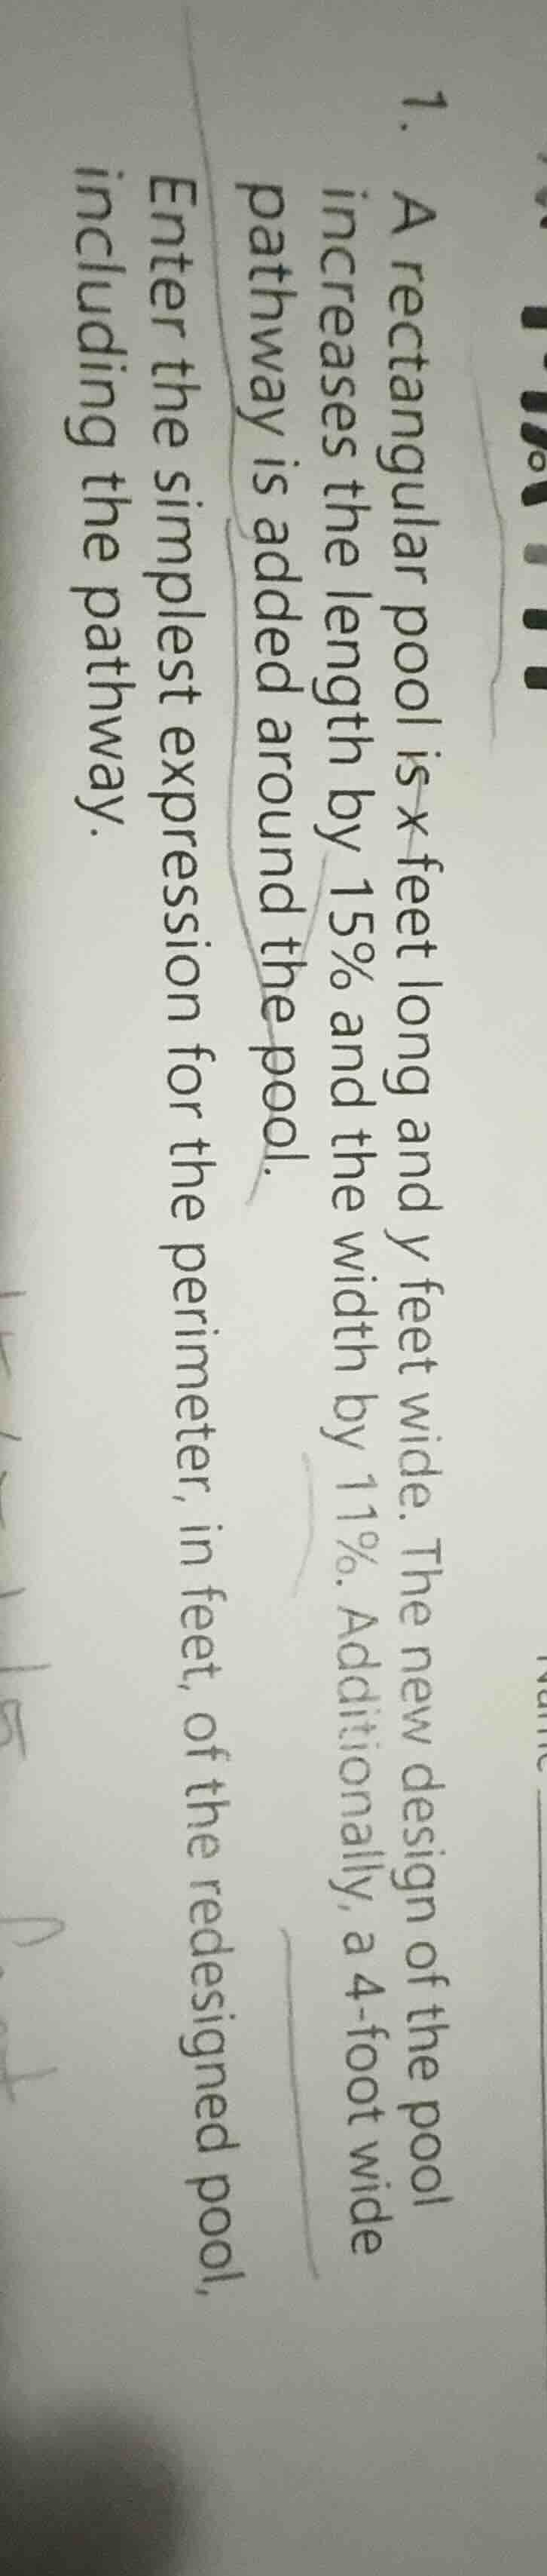 1. A rectangular pool is x feet long and y feet wide. The new design of the pool
increases the length by 15% and the width by 11%. Additionally, a 4-foot wide
pathway is added around the pool.
Enter the simplest expression for the perimeter, in feet, of the redesigned pool,
including the pathway.